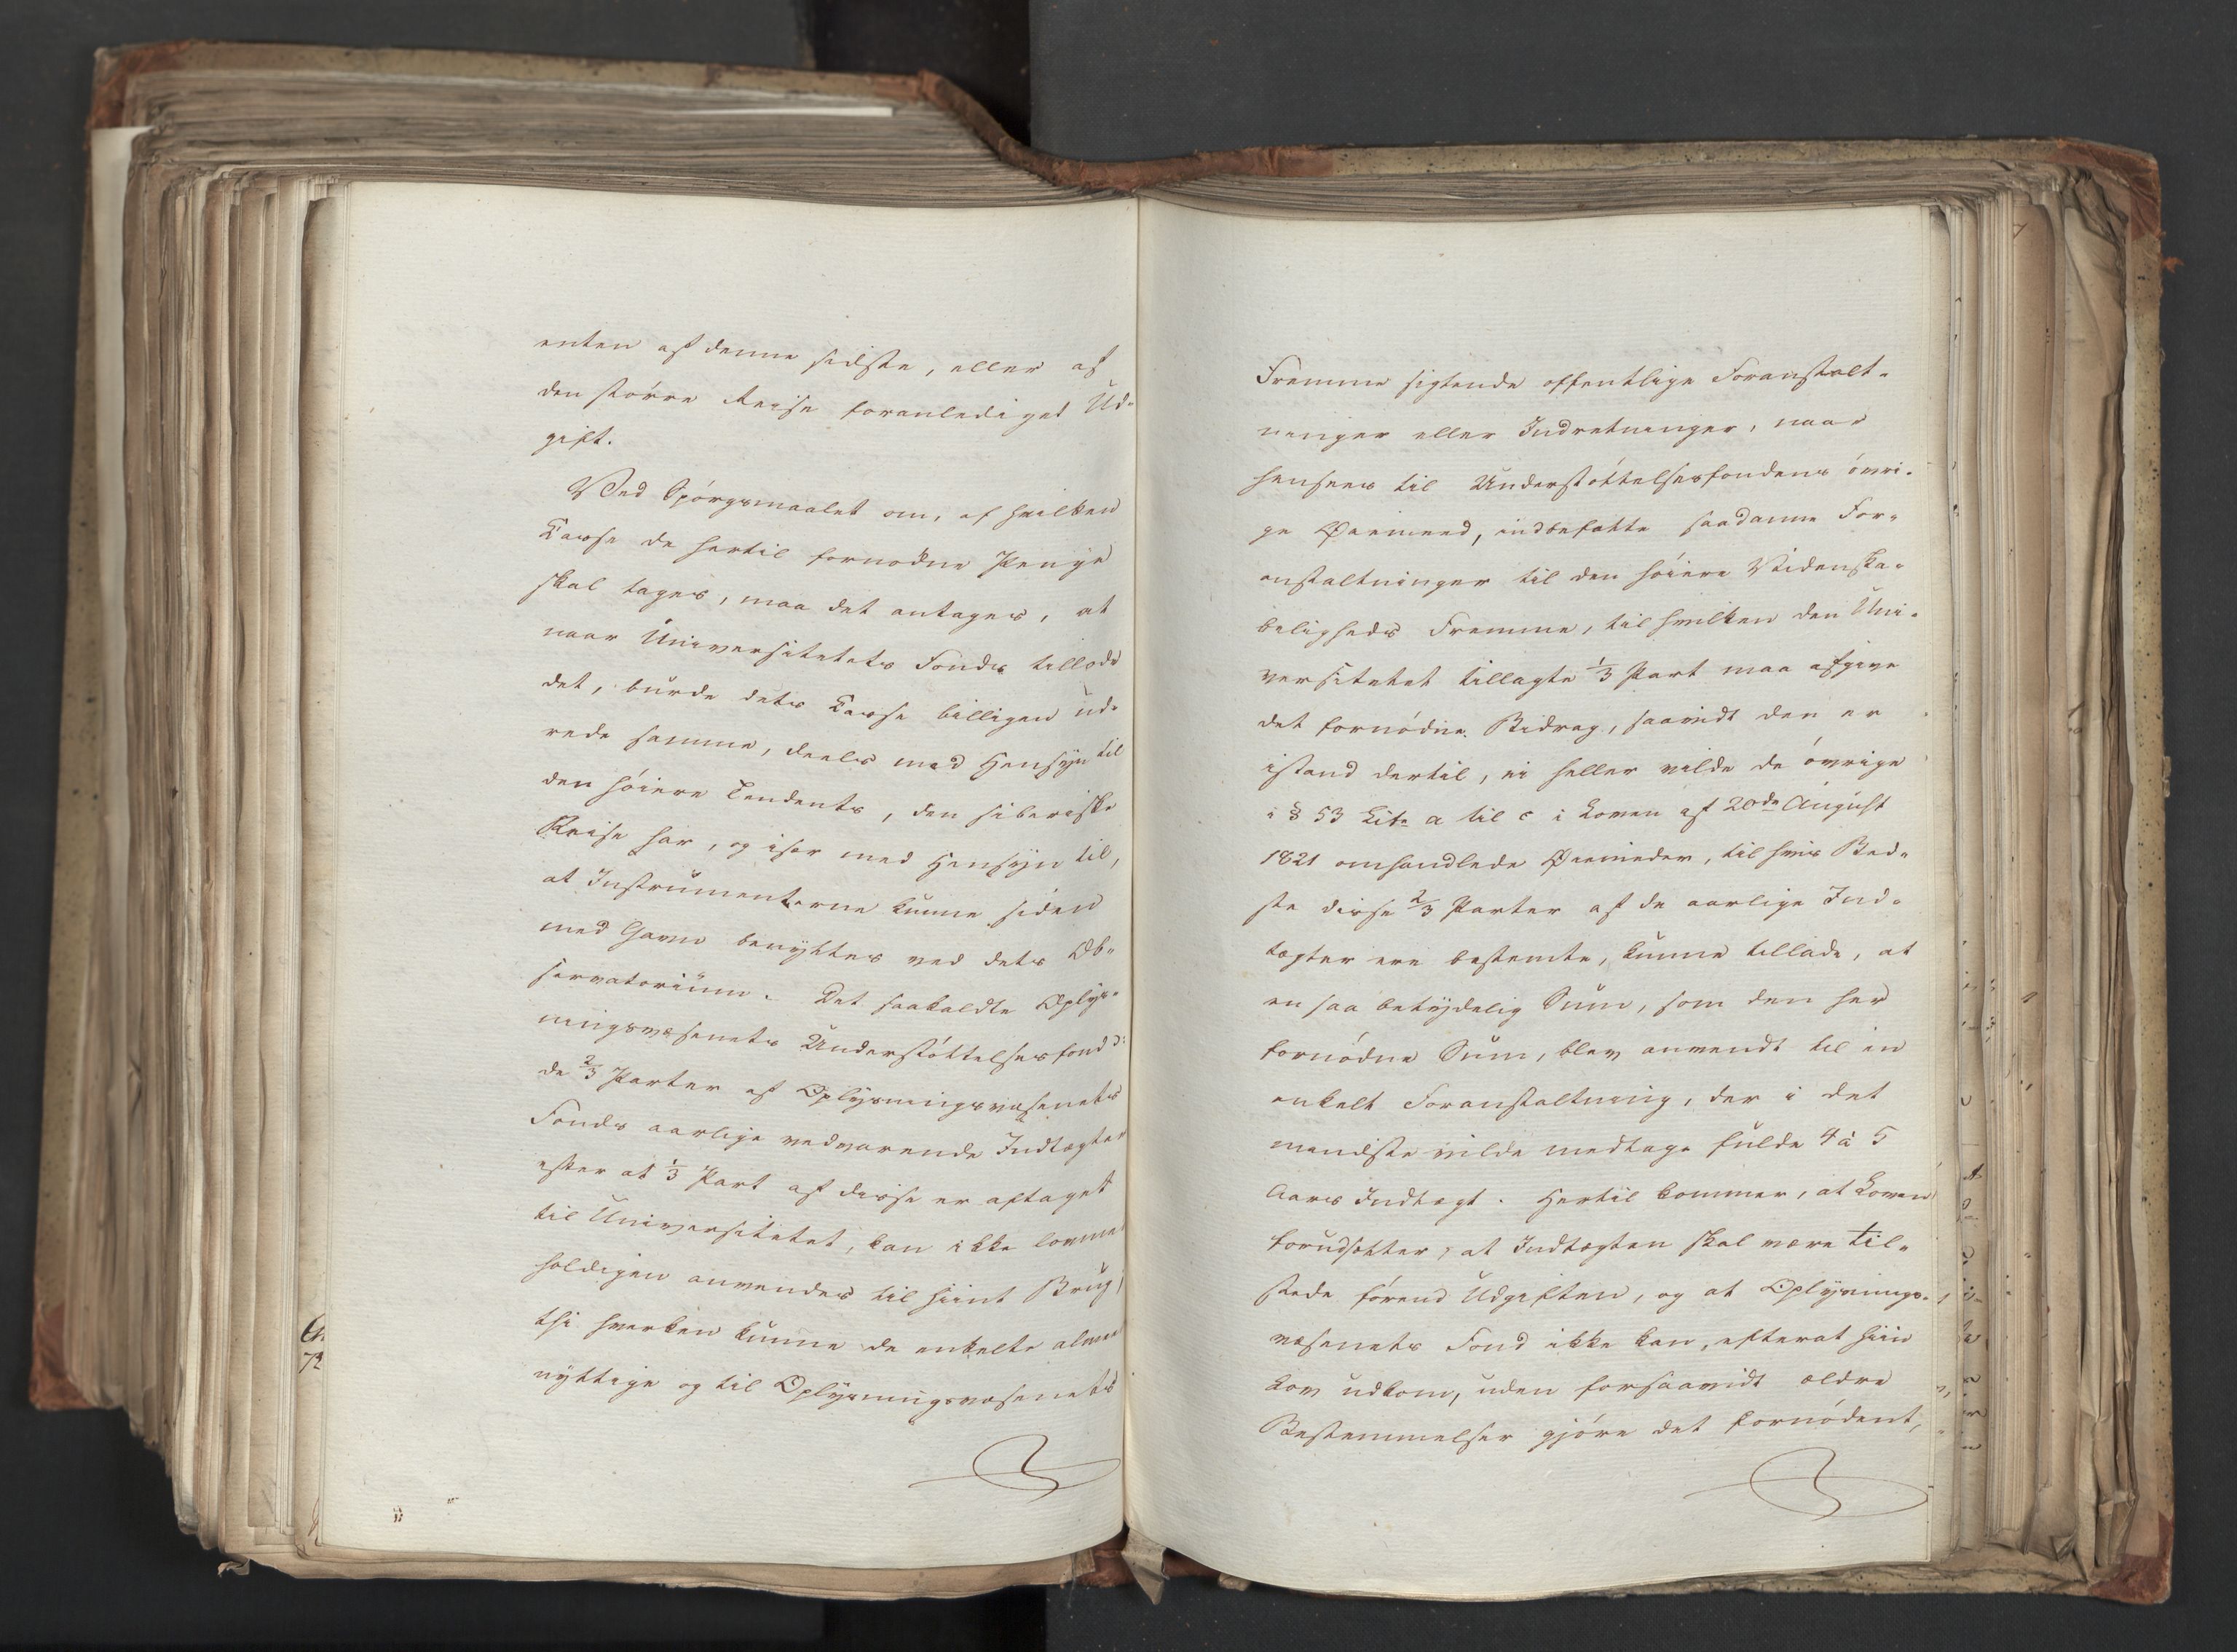 enten af denne sidste, eller af
den større Reise foranlediget Ud-
gift.
Ved Spørgsmaalet om, af hvilken
Casse de hertil fornødne Penge
skal tages, maa det antages, at
naar Universitetets Fonds tillode
det, burde dets Casse billigen ud-
rede samme, deels med Hensyn til
den høiere Tendents, den siberiske
Reise har, og især med Hensyn til,
at Instrumenterne kunne siden
med Gavn benyttes ved dets Ob-
servatorium. Det saakaldte Oplys-
ningsvæsenets Understøttelsesfond ɔ:
de 2/3 Parter af Oplysningsvæsenets
Fonds aarlige vedvarende Indtægter
efter at 1/3 Part af disse er aftaget
til Universitetet, kan ikke lovme
holdigen anvendes til hiint Brug;
thi hverken kunne de enkelte alme
nyttige og til Oplysningsvæsenets
Fremme sigtende offentlige Foranstalt-
ninger eller Indretninger, naar
hensees til Understøttelsesfondens øvri-
ge Øiemeed, indbefatte saadanne For-
anstaltninger til den høiere Videnska-
beligheds Fremme, til hvilken den Uni-
versitetet tillagte 1/3 Part maa afgive
det fornødne Bidrag, saavidt den er
istand dertil, ei heller vilde de øvrige
i § 53 Litr a til c i Loven af 20de August
1821 omhandlede Øiemeder, til hvis Bed-
ste disse 2/3 Parter af de aarlige Ind-
tægter ere bestemte, kunne tillade, at
en saa betydelig Sum, som den her
fornødne Sum, blev anvendt til en
enkelt Foranstaltning, der i det
mindste vilde medtage fulde 4 à 5
Aars Indtægt. Hertil kommer, at Loven
forudsætter, at Indtægten skal være til-
stede førend Udgiften, og at Oplysnings-
væsenets Fond ikke kan, efterat hiin
Lov udkom, uden forsaavidt ældre
Bestemmelser gjøre det fornødent,